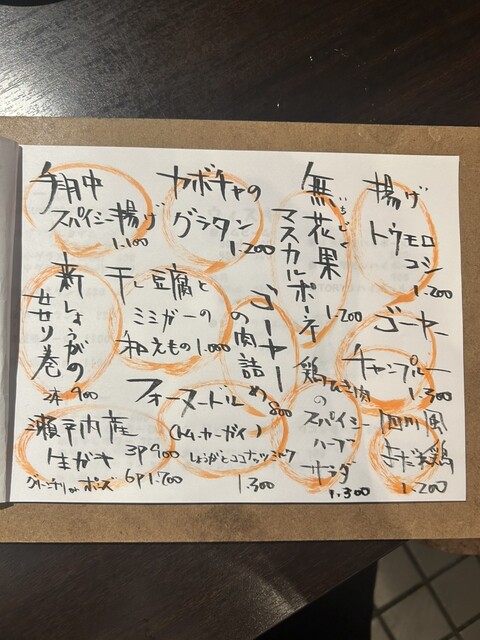 揚げ
トウモロ
コシ
1.200
無花果
いちじく
マスカルポーネ
1.200
カボチャの
グラタン
1.200
手羽中
スパイシー揚げ
1.100
ゴーヤー
チャンプルー
1.300
ゴーヤー
の肉詰め
800
干し豆腐と
ミミガーの
和えもの 1.000
新しょうがの
肉巻
2本 900
四川風
よだれ鶏
1.200
鶏ひき肉
の
スパイシー
ハーブ
サラダ
1.300
フォーヌードル
(トムカーガイ)
しょうがとココナッツミルク
1.300
瀬戸内産
生ガキ 3P 900
6P 1.700
グリーンチリ or ポン酢